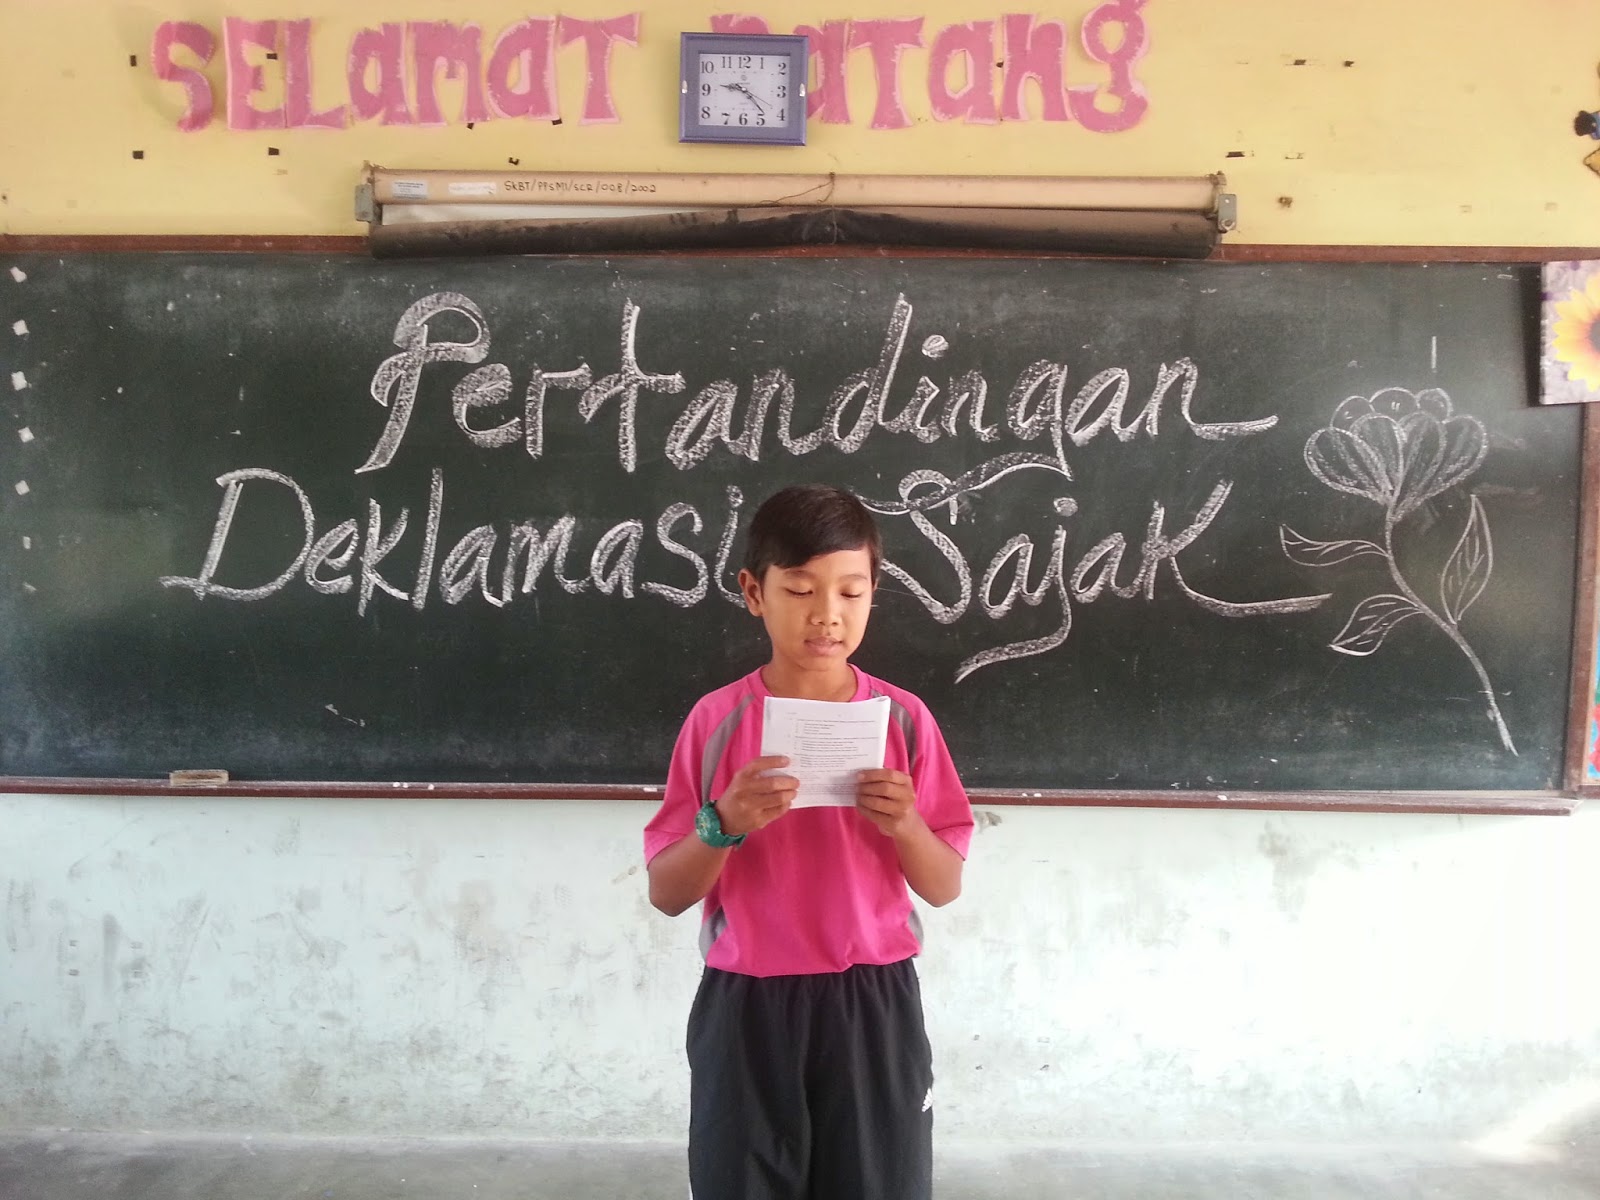 SELAMAT DATANG
11 12 1
10 2
9 3
8 4
7 6 5
SKBT/PPSMI/SCR/008/2002
Pertandingan
Deklamasi Sajak